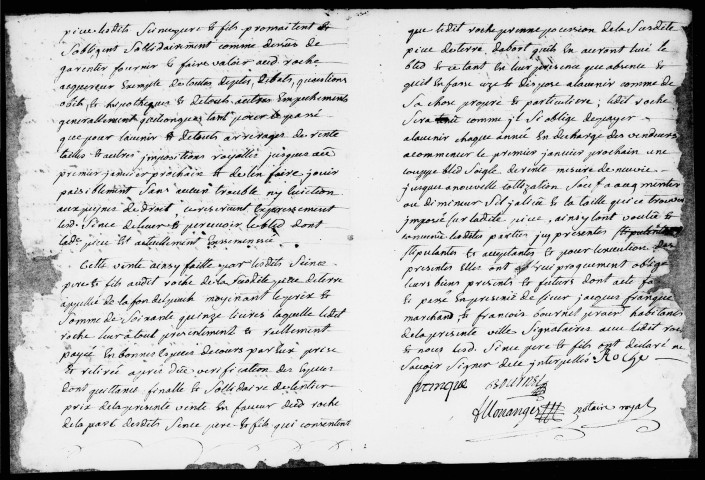 piece lesdits Since pere & fils promettent &
sobligent sollidairement comme dessus de
garentir fournir & faire valoir aud roche
acquereur exempte de toutes dettes, debats, questions
obits, & hipotheques & de touts autres Empechements
generallement quelconques tant pour le passé
que pour lavenir & de touts arrerages de rente
tailles & autres impositions royalles jusques au
premier janvier prochain & de len faire jouir
paisiblement sans aucun trouble ny Eviction
aux peines de droit, se reservant Expressement
lesd. Since de lever & percevoir le bled dont
lade piece est actuellement Ensemencée
Cette vente ainsy faitte par lesdits Since
pere & fils audit roche de la susdite piece de terre
appellée de la fon moyenant le prix &
somme de soixante quinze livres laquelle ledit
roche leur a tout presentement & reellement
payée En bonnes Especes de cours par Eux prise
& retirée apres due verification des Especes
dont quittance finalle & sollidaire de lentier
prix de la presente vente En faveur dud roche
de la part desdits Since pere & fils qui consentent
que ledit roche prenne pocession de la susdite
piece de terre, dabort quils En auront levé le
bled & ce tant En leur presence que absence &
quil En fasse uze & dispose a lavenir comme de
sa chose propre & particuliere; ledit roche
sera comme il soblige de payer
alavenir chaque année En decharge des vendeurs
a commencer le premier janvier prochain une
couppe bled soigle de rente mesure de
jusqua nouvelle cottization sauf a augmenter
ou diminuer sil y a lieu & la taille qui ce trouvera
imposée sur ladite piece, ainsy lont voulu &
convenu lesdites parties icy presentes
stipulantes & acceptantes & pour lexecution des
presentes Elles ont reciproquement obligé
leurs biens presents & futurs dont acte fait
& passé En presence de sieur jacques franque
marchand & francois bournet praer habitants
de la presente ville signataires avec ledit roche
& nous lesd. Since pere & fils ont declaré ne
scavoir signer de ce interpellés Roche
franque bournet
notaire royal